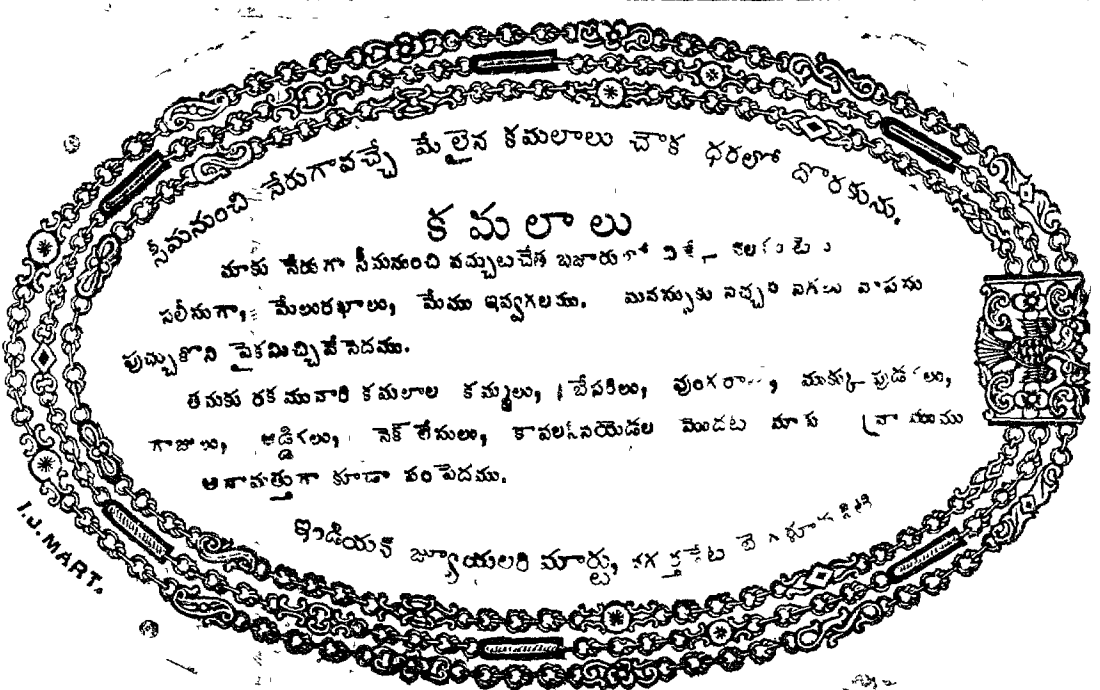 సీమనుంచి నేరుగావచ్చే మేలైన కమలాలు చౌక ధరలలో దొరకును.
కమలాలు
మాకు నేరుగా సీమనుంచి వచ్చుటచేత బజారులో
సలీసుగా, మేలురఖాలు, మేము ఇవ్వగలము. మనస్సుకు నచ్చని నగలు వాపసు
పుచ్చుకొని పైకమిచ్చివేసెదము.
తమకు రకమువారి కమలాల కమ్మలు, బేసరిలు, వుంగరాలు, ముక్కుపుడకలు,
గాజులు, అడ్డిగలు, నెక్ లేసులు, కావలసినయెడల మొదట మాకు వ్రాయుము
అనామత్తుగా కూడా పంపెదము.
ఇండియన్ జ్యూయలరి మార్టు, నగర్తపేట బెంగుళూరుసిటి
I.J. MART.